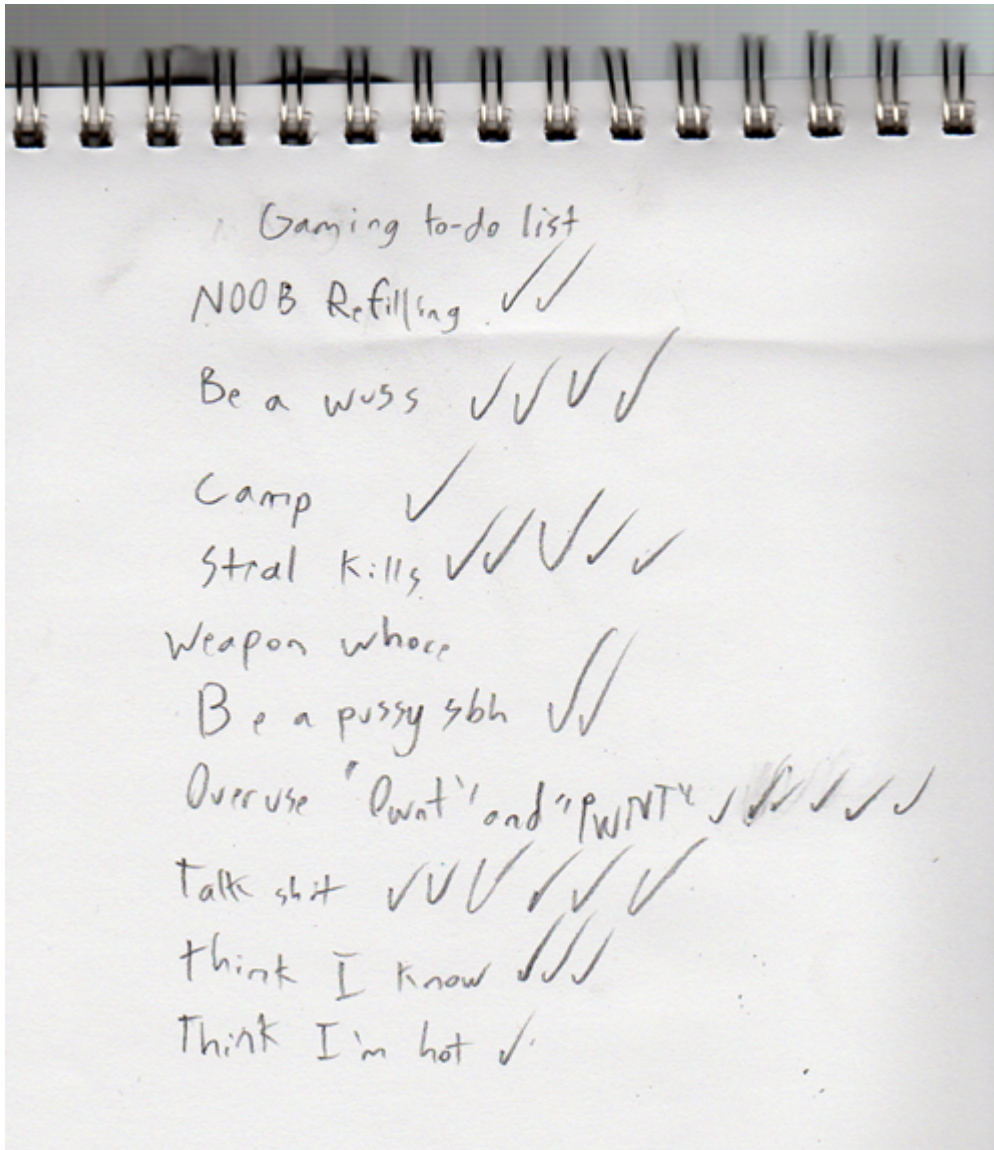 Gaming to-do list
NOOB Refilling ✓✓
Be a wuss ✓✓✓✓
Camp ✓
Steal Kills ✓✓✓✓✓
Weapon whore
Be a pussy sbh ✓✓
Overuse "Ownt" and "PWNT" ✓✓✓✓✓✓
Talk shit ✓✓✓✓✓✓
think I know ✓✓✓
Think I'm hot ✓